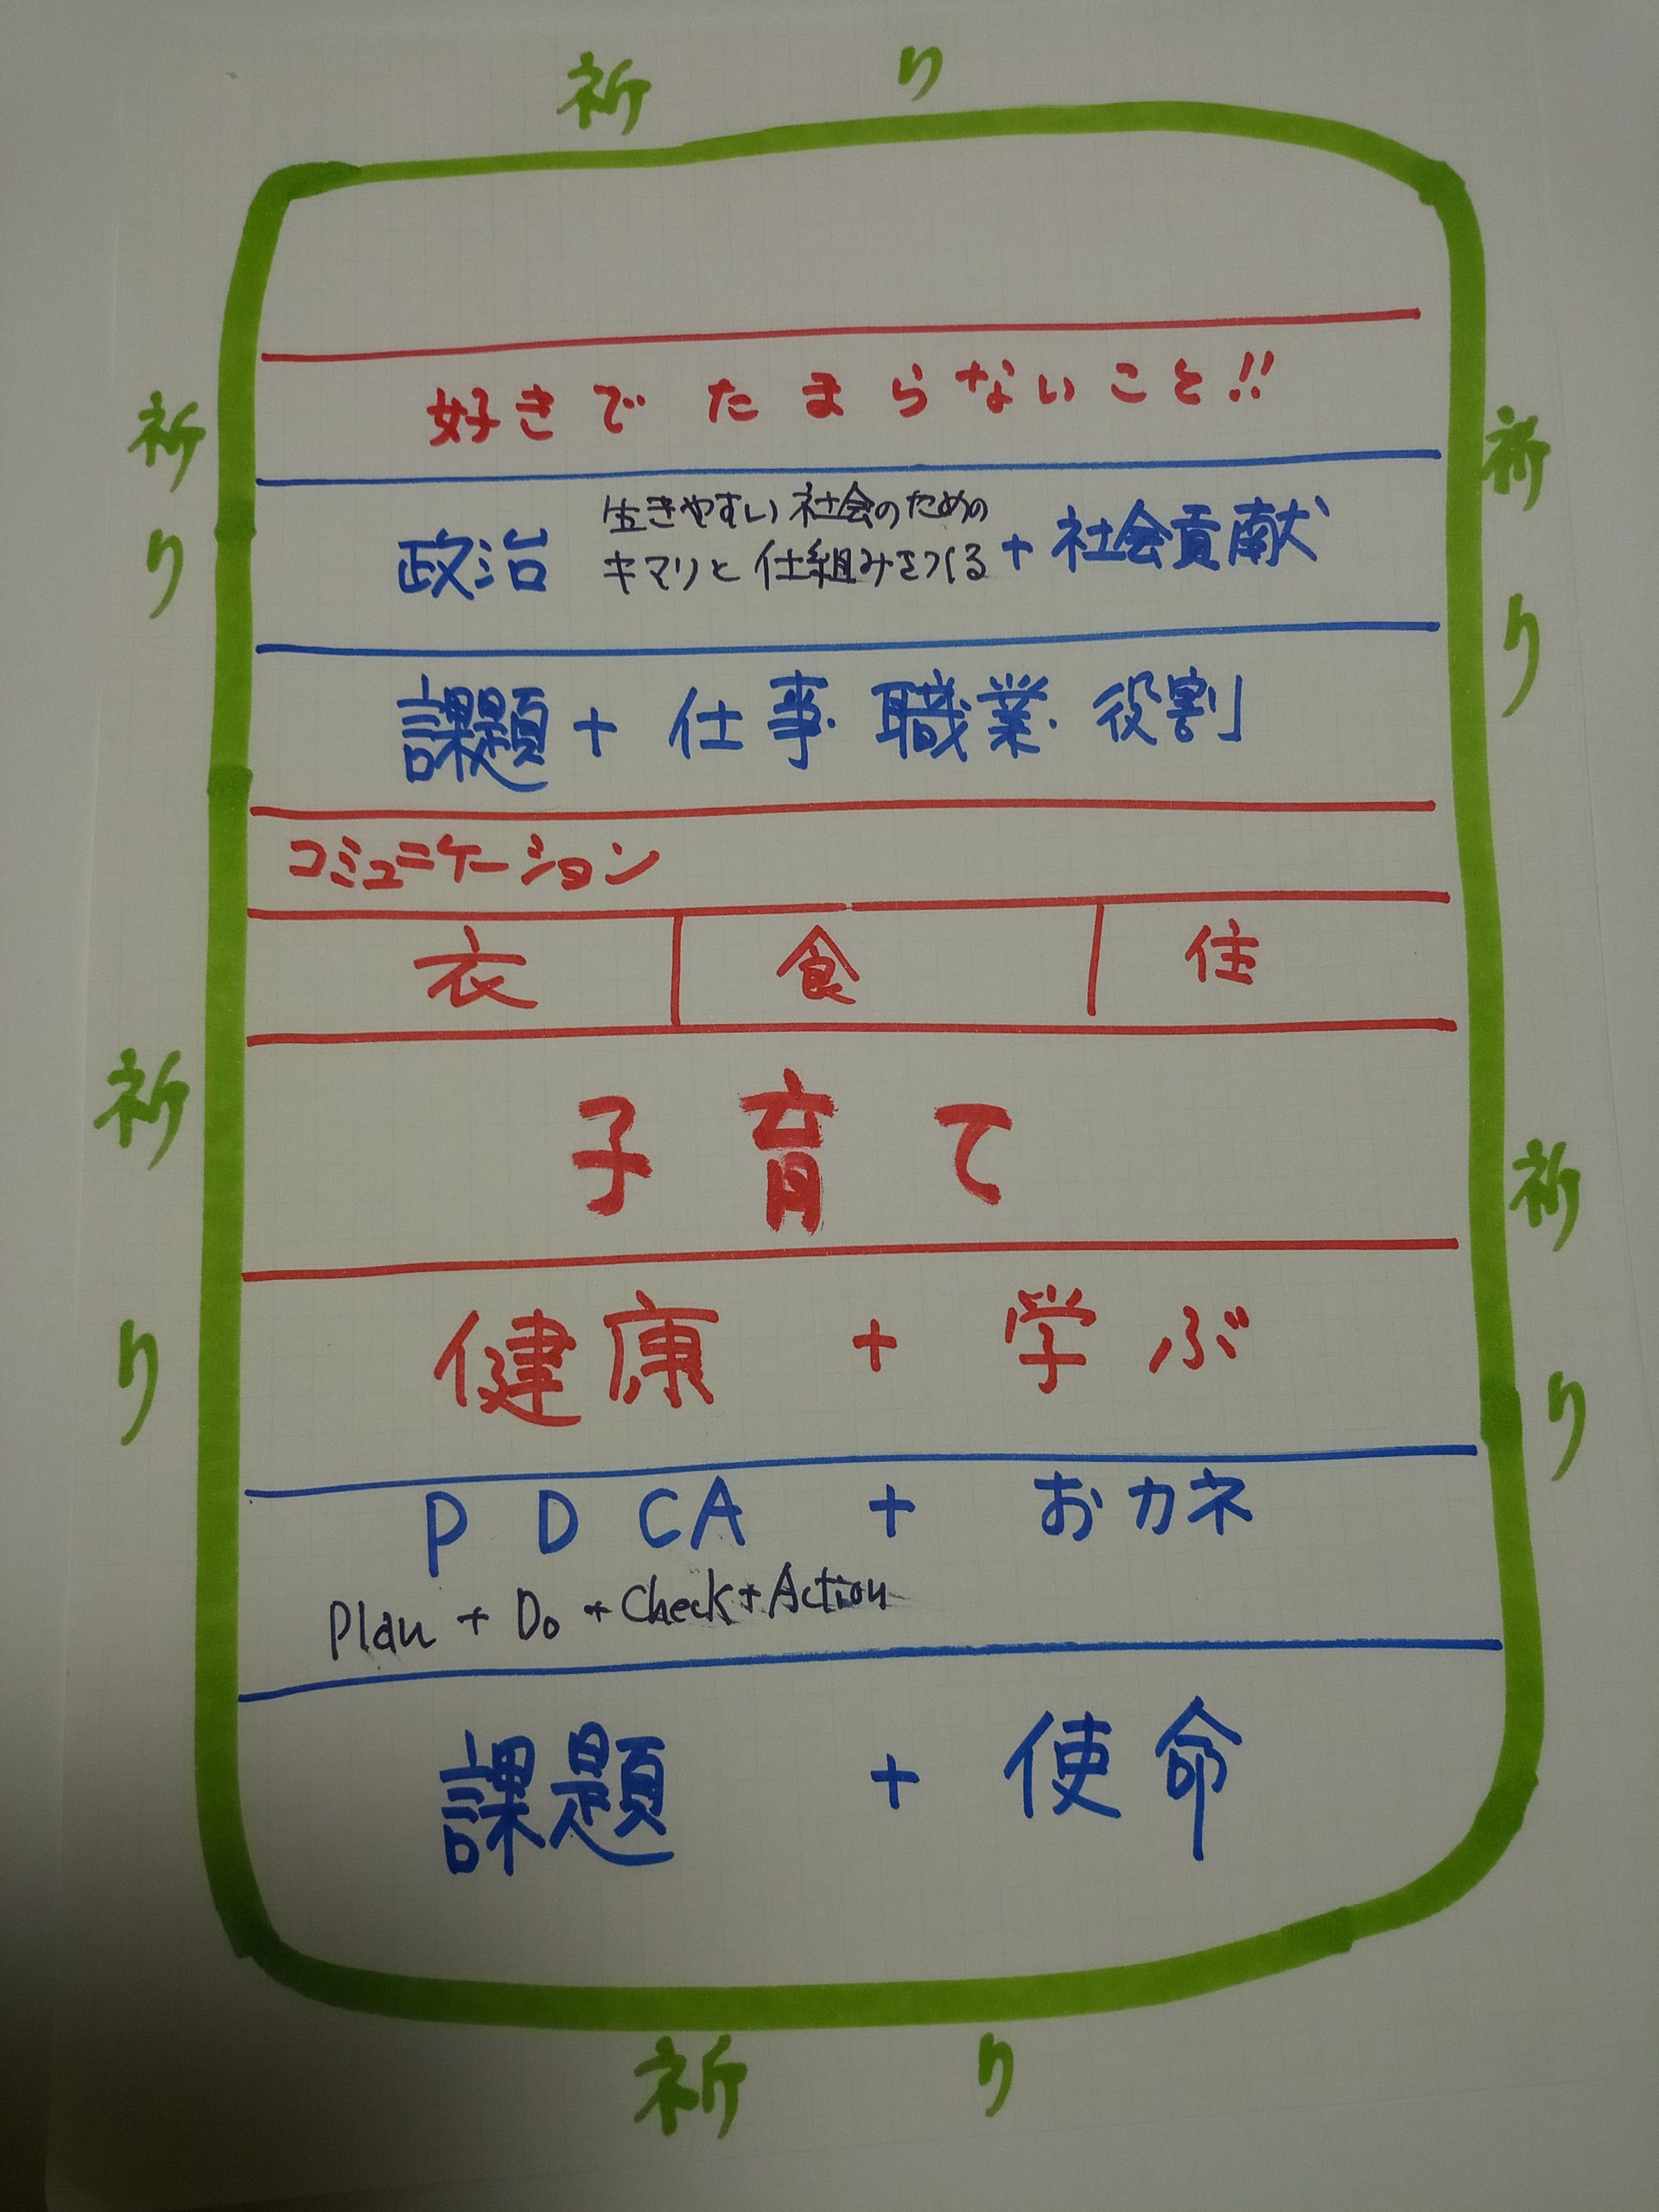 祈り
好きでたまらないこと!!
祈り
祈り
政治 生きやすい社会のための
キマリと仕組みをつくる + 社会貢献
課題 + 仕事・職業・役割
コミュニケーション
衣 食 住
子育て
祈り
祈り
健康 + 学ぶ
PDCA + おカネ
Plan + Do + Check + Action
課題 + 使命
祈り